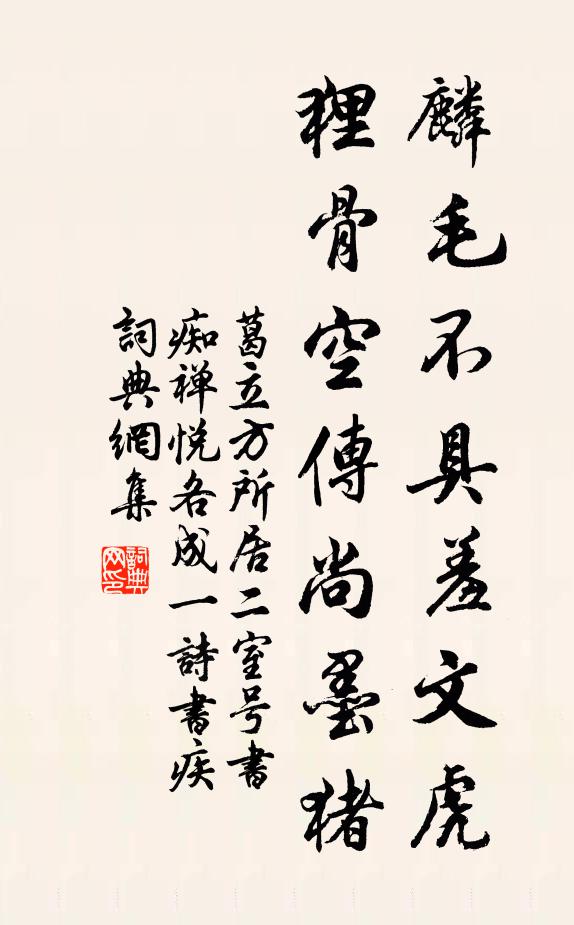 麟毛不具羞文虎
狸骨空傳尚墨猪
葛立方所居二室号書
痴禅悦各成一詩書疾
詞典網集
詞典网印